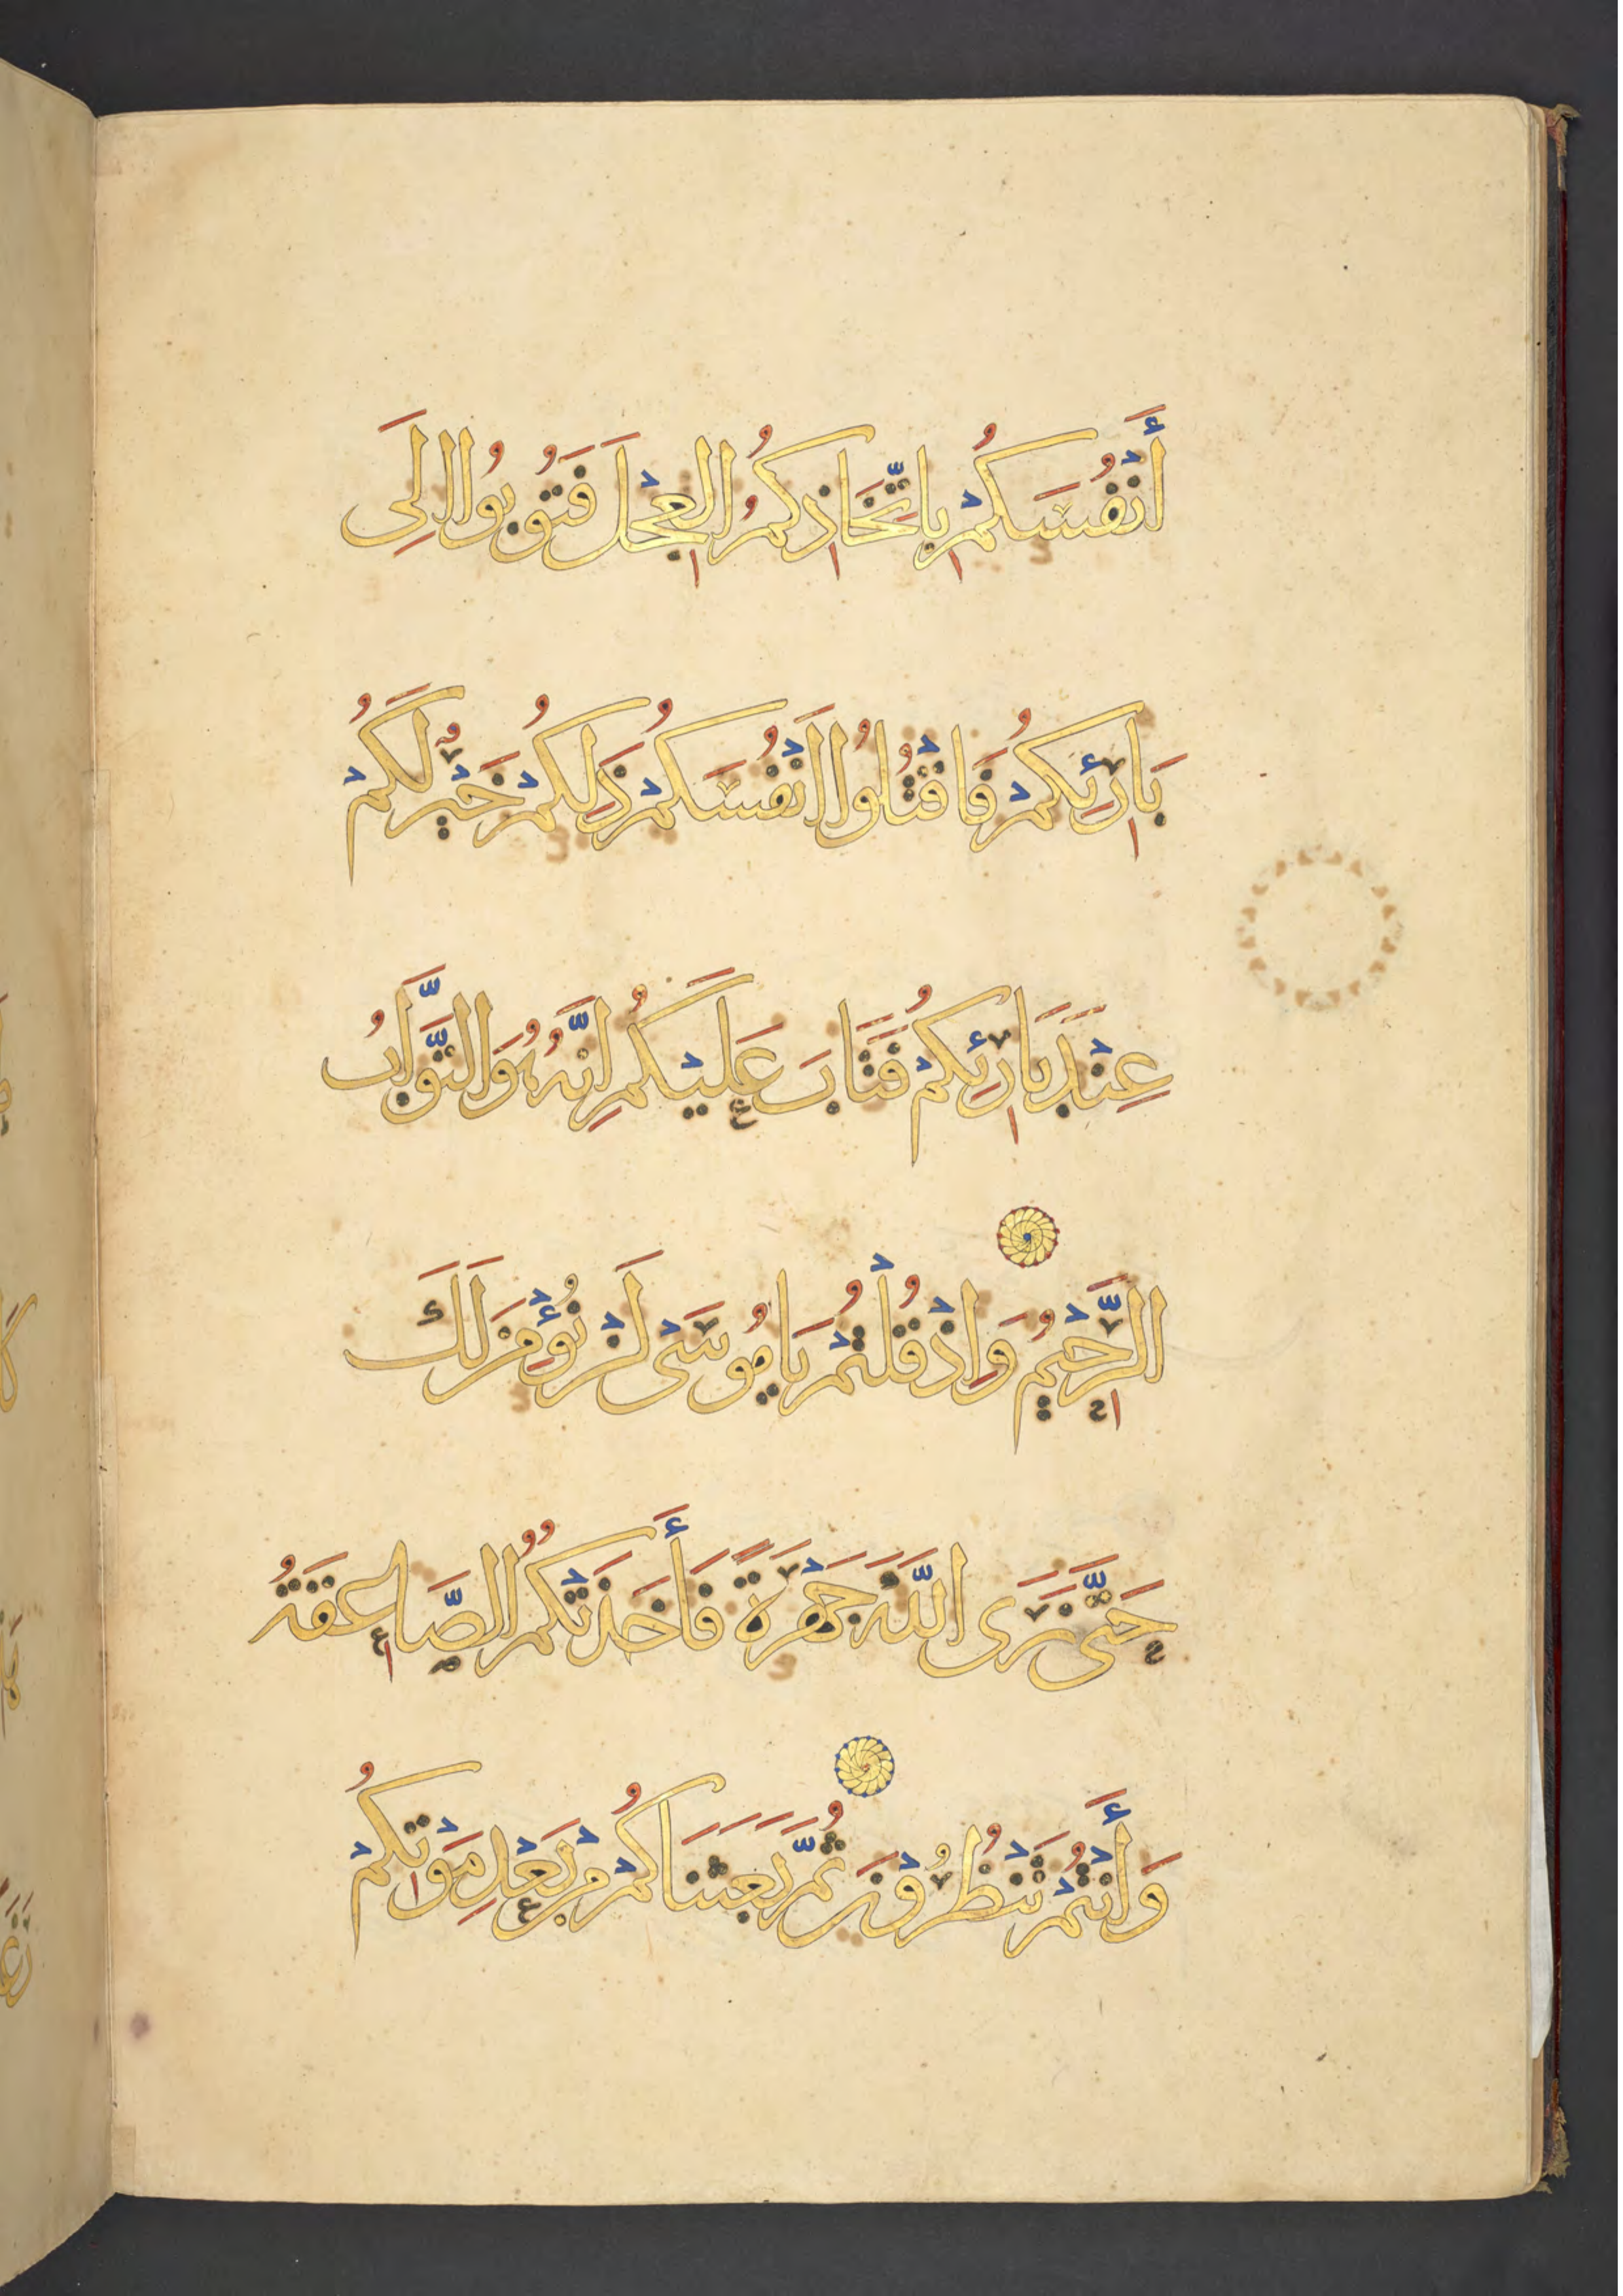 أَنْفُسَكُمْ بِاتِّخَاذِكُمُ الْعِجْلَ فَتُوبُوا إِلَى
بَارِئِكُمْ فَاقْتُلُوا أَنْفُسَكُمْ ذَلِكُمْ خَيْرٌ لَكُمْ
عِنْدَ بَارِئِكُمْ فَتَابَ عَلَيْكُمْ إِنَّهُ هُوَ التَّوَّابُ
الرَّحِيمُ وَإِذْ قُلْتُمْ يَا مُوسَى لَنْ نُؤْمِنَ لَكَ
حَتَّى نَرَى اللَّهَ جَهْرَةً فَأَخَذَتْكُمُ الصَّاعِقَةُ
وَأَنْتُمْ تَنْظُرُونَ ثُمَّ بَعَثْنَاكُمْ مِنْ بَعْدِ مَوْتِكُمْ